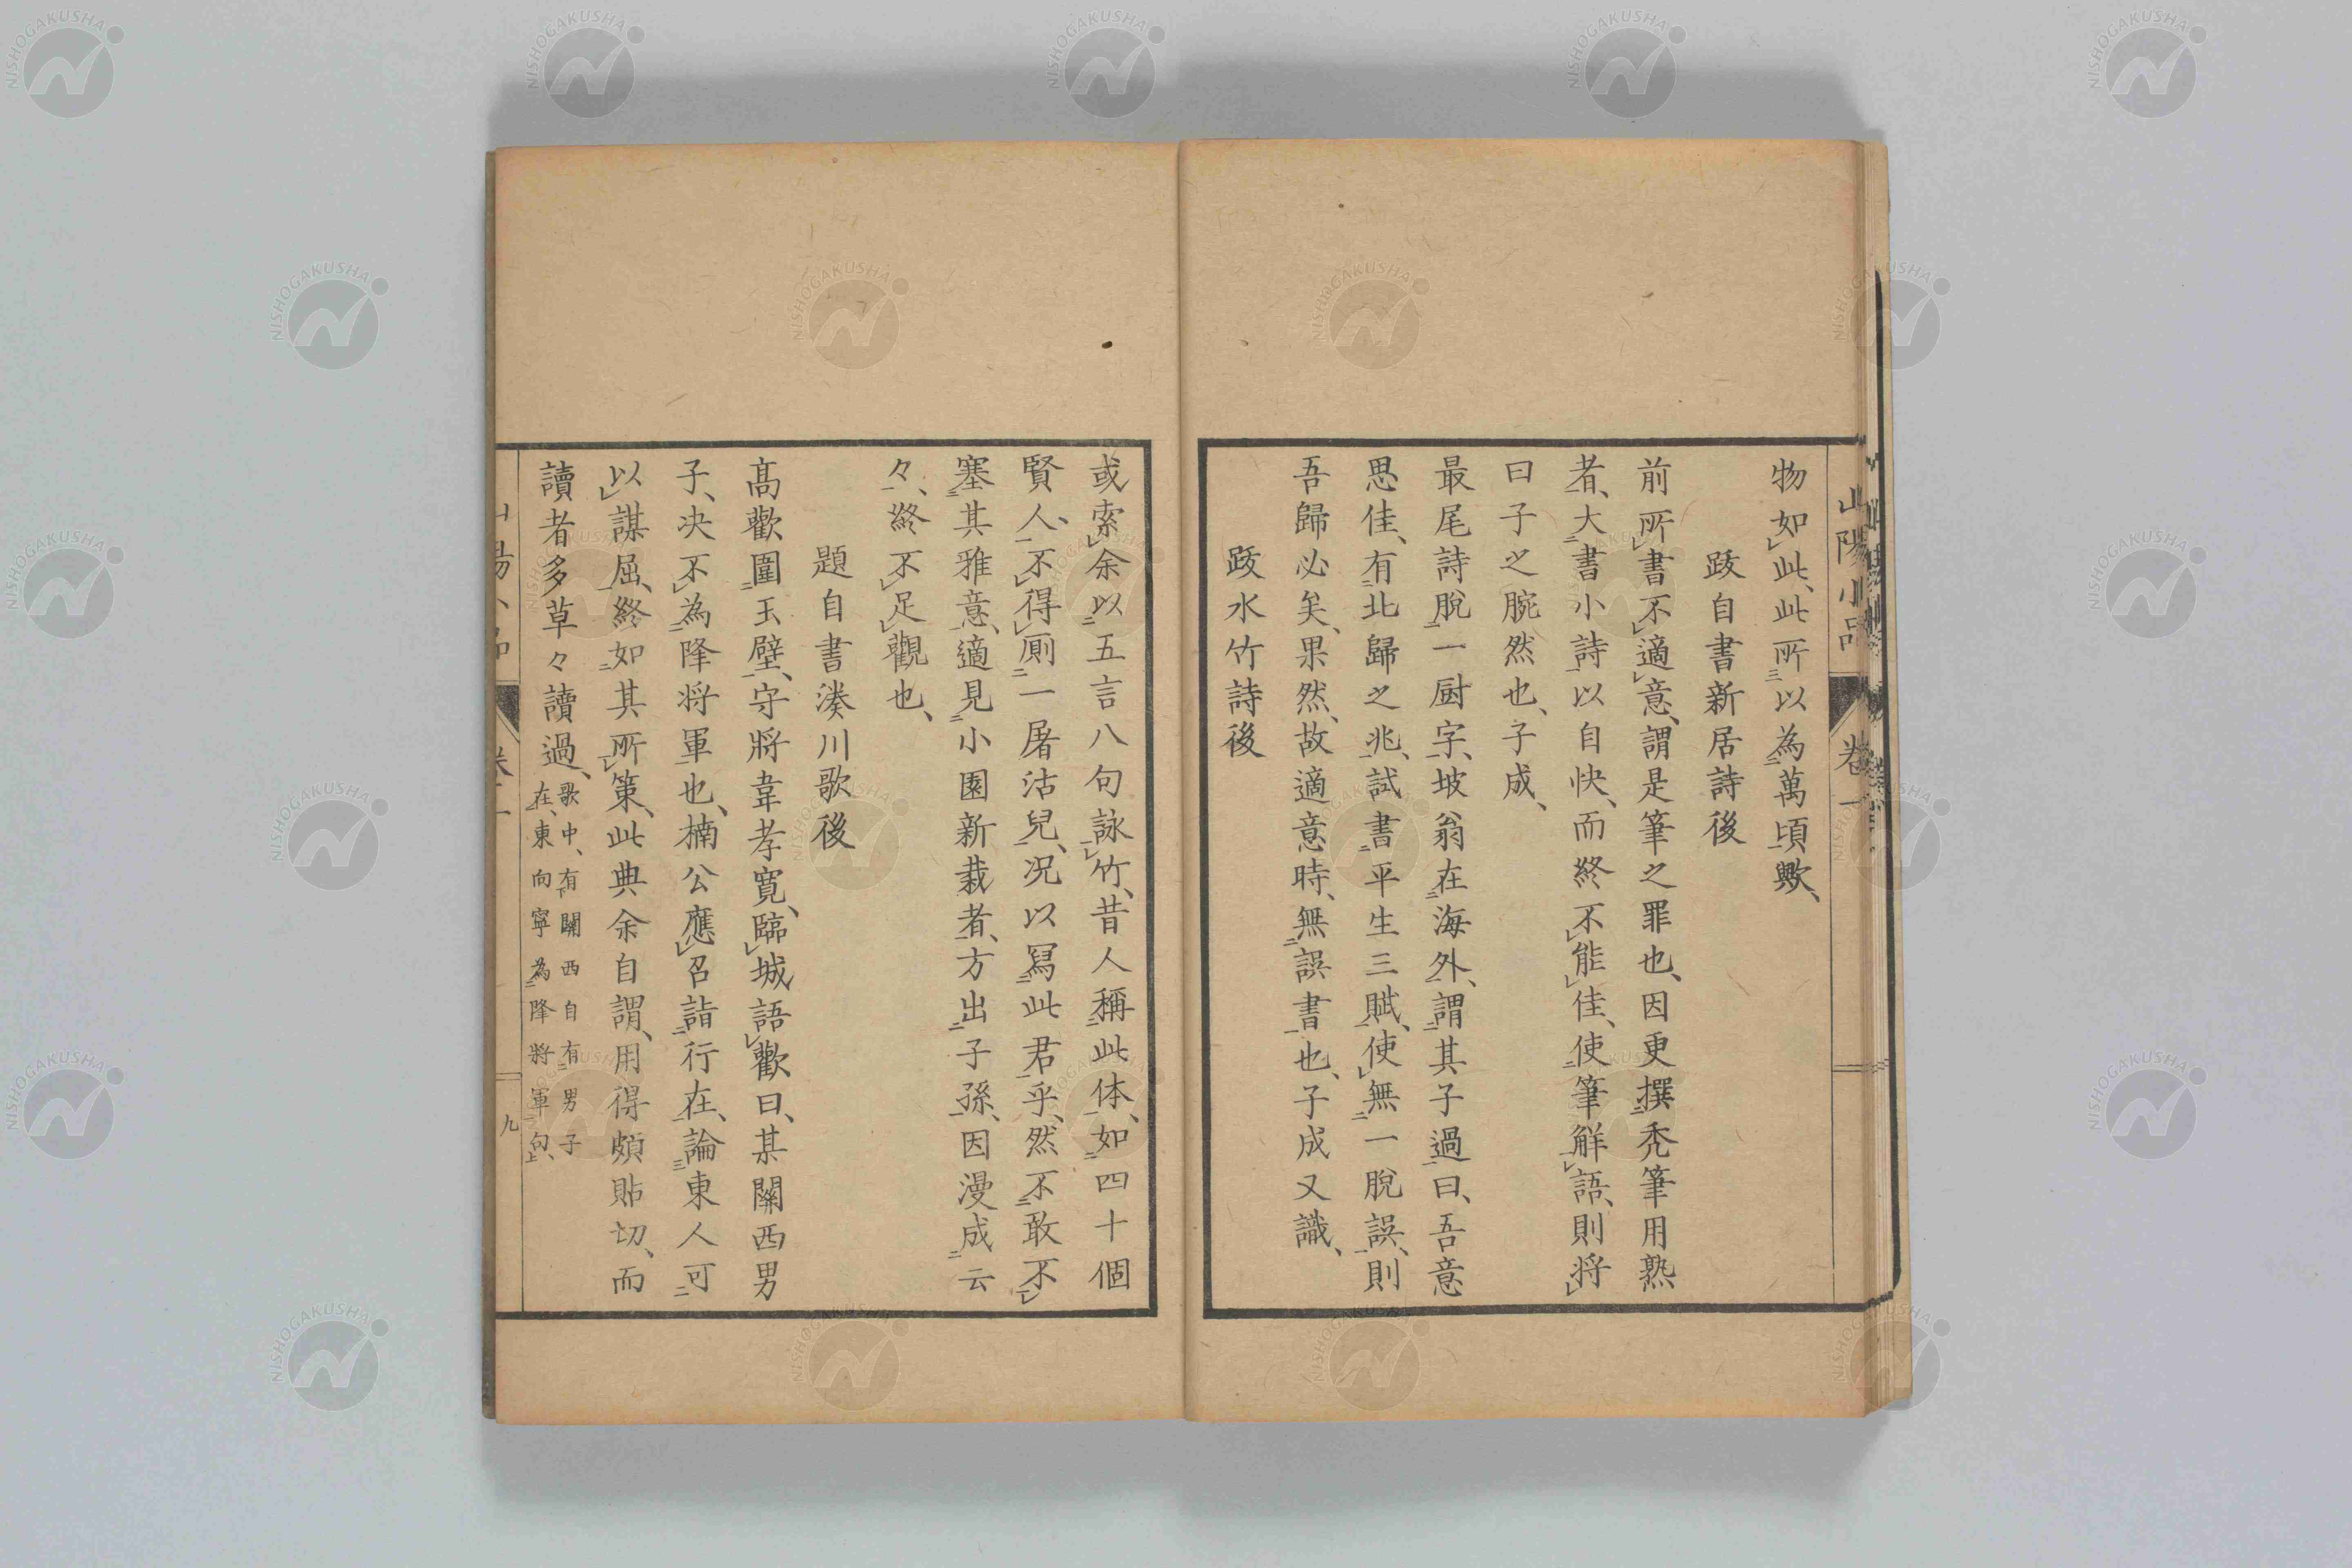 山陽小品
卷一
物如此、此所以為萬頃歟、
跋自書新居詩後
前所書不適意、謂是筆之罪也、因更撰禿筆用熟
者、大書小詩以自快、而終不能佳、使筆解語、則將
曰子之腕然也、子成、
最尾詩脫一厨字、坡翁在海外、謂其子過曰、吾意
思佳、有北歸之兆、試書平生三賦、使無一脫誤、則
吾歸必矣、果然、故適意時、無誤書也、子成又識、
跋水竹詩後
或索余以五言八句詠竹、昔人稱此体、如四十個
賢人、不得厠一屠沽兒、况以寫此君乎、然不敢不
塞其雅意、適見小園新栽者、方出子孫、因漫成云
々、終不足觀也、
題自書湊川歌後
高歡圍玉壁、守將韋孝寬、臨城語歡曰、某關西男
子、决不為降将軍也、楠公應召詣行在、論東人可
以謀屈、終如其所策、此典余自謂、用得頗貼切、而
讀者多草々讀過、
歌中、有關西自有男子
在、東向寧為降將軍句、
九
NISHOGAKUSHA